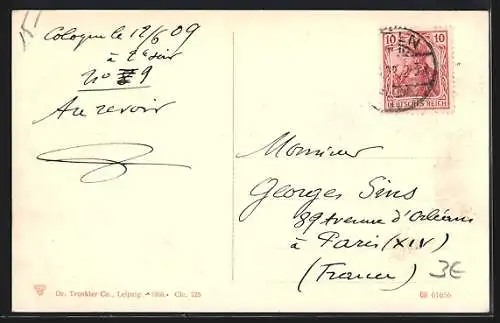 15-
Cologne le 12/6 09
à 2e soir
No 9
Au revoir
10 10
DEUTSCHES REICH
Monsieur
Georges Sins
89 Avenue d'Orléans
à Paris (XIV)
(France)
3E
Dr. Trenkler Co., Leipzig. 1906. Chr.